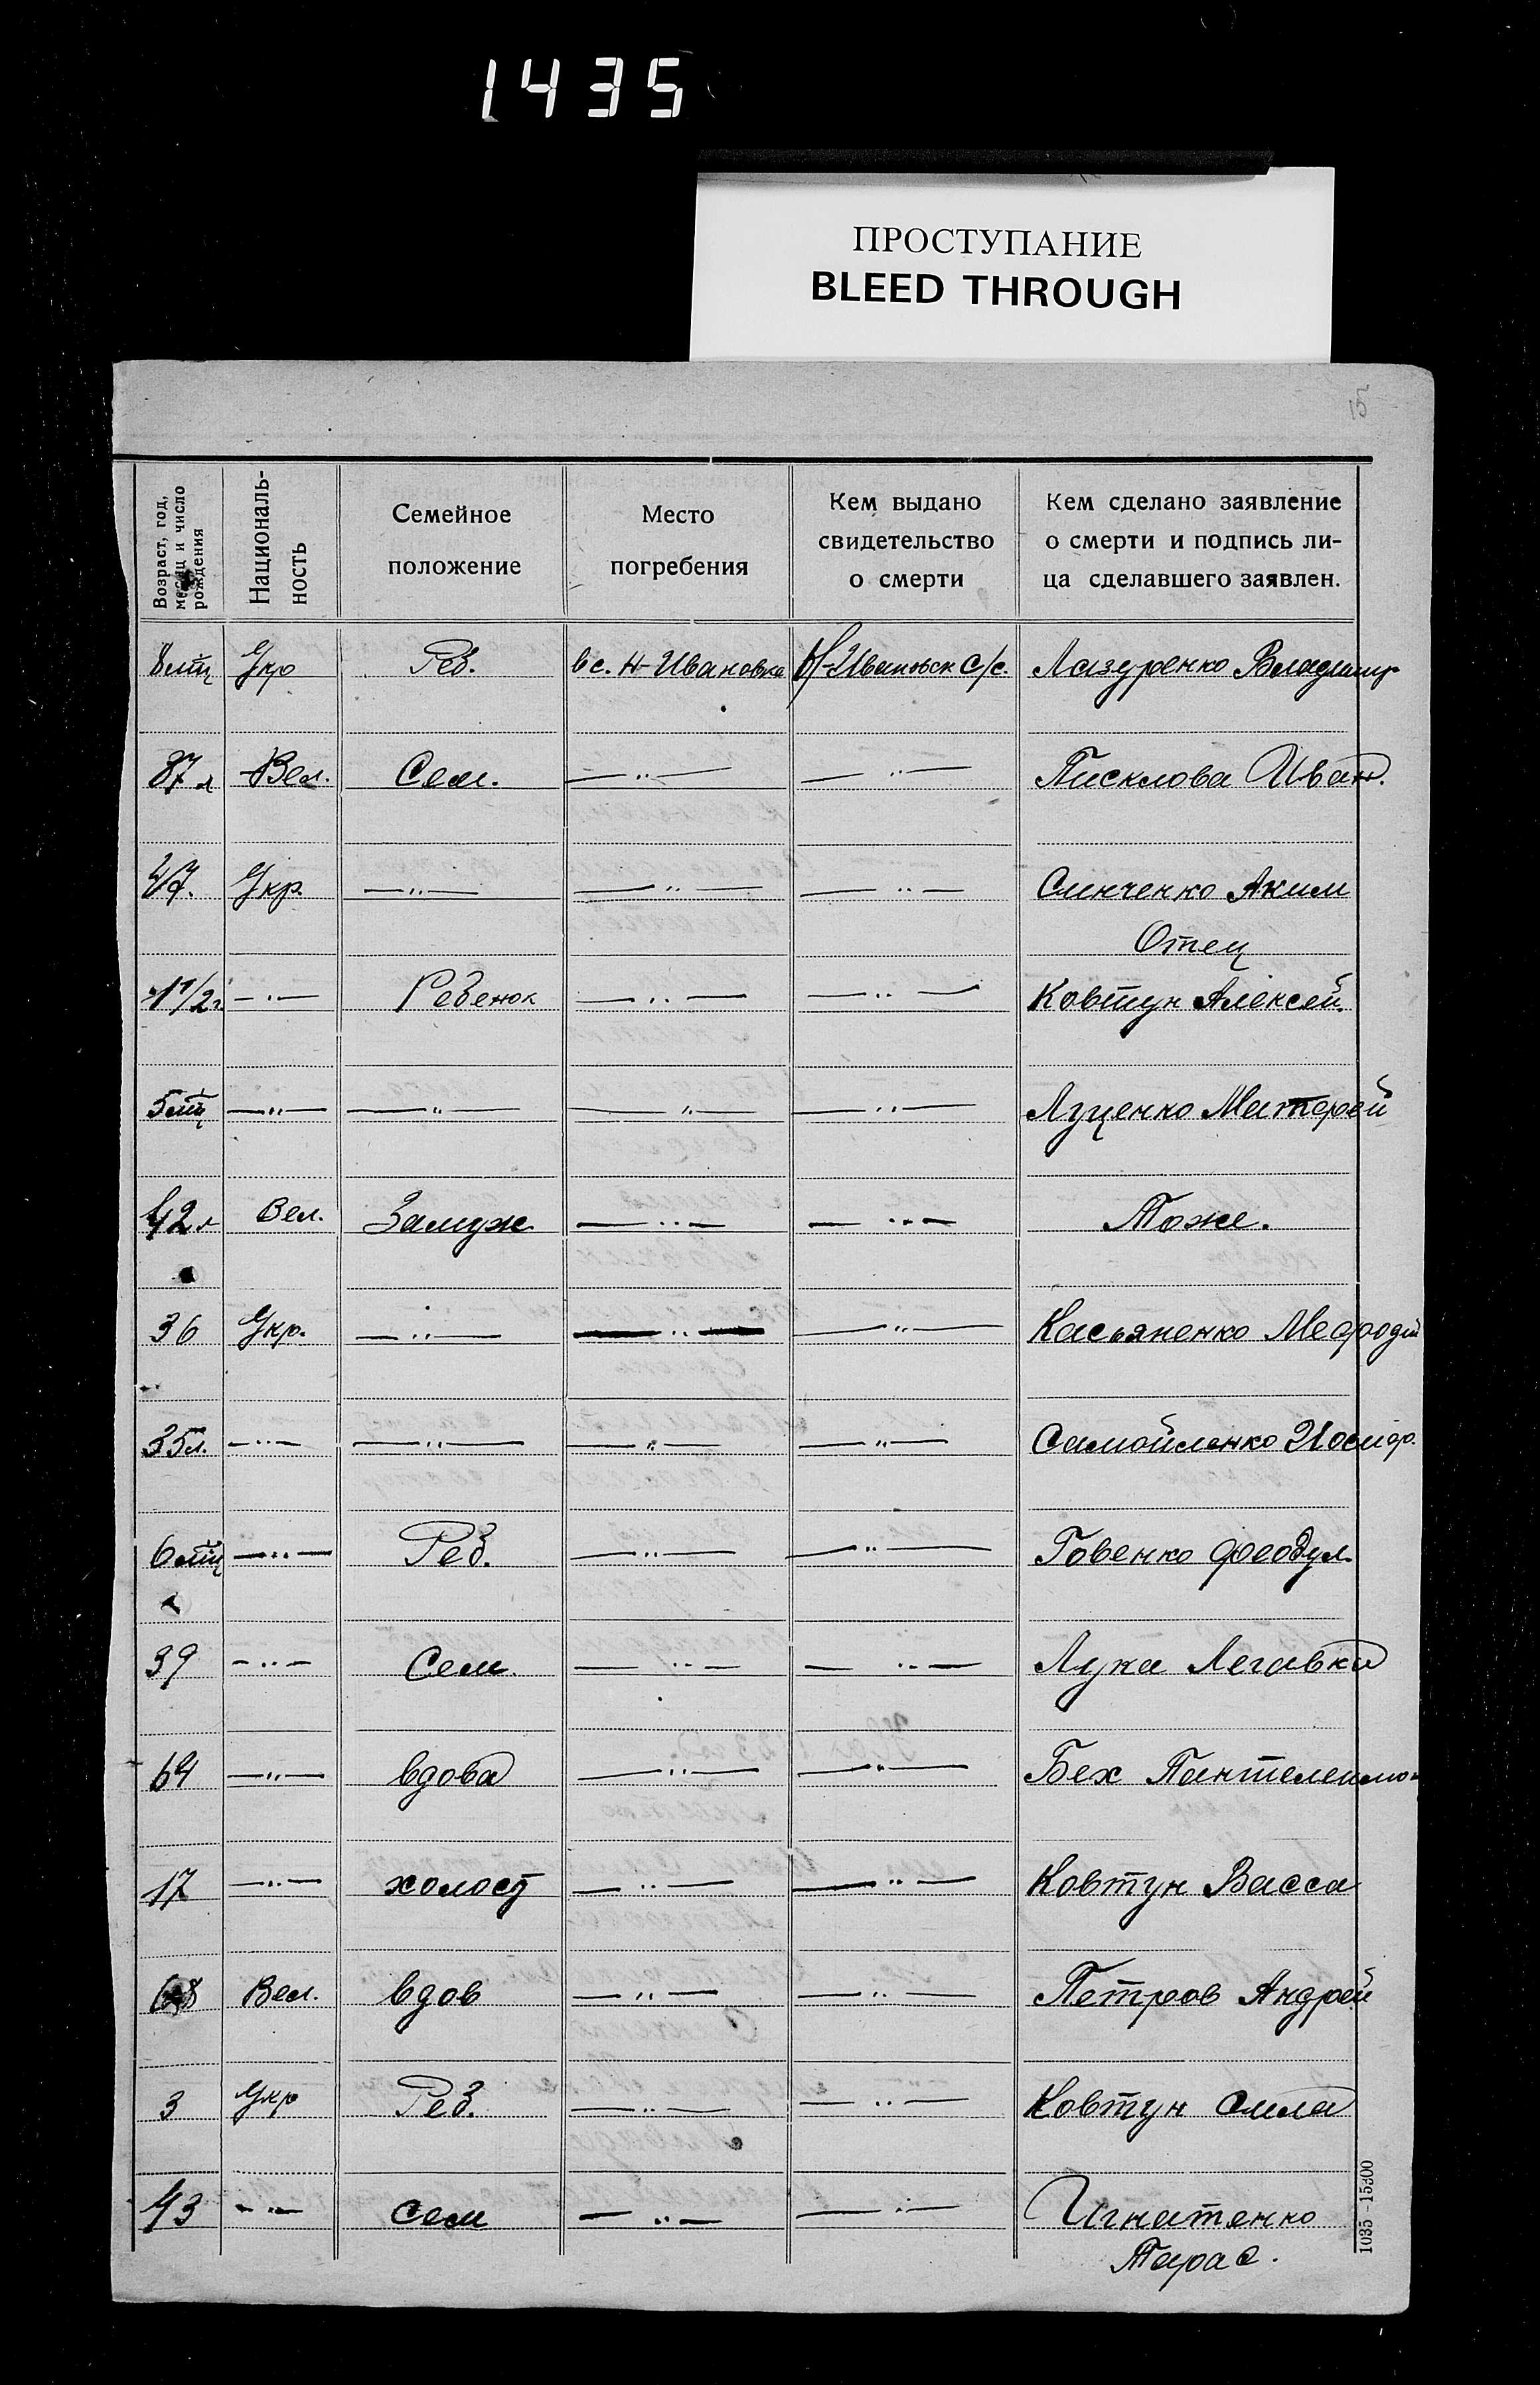 1435
ПРОСТУПАНИЕ
BLEED THROUGH
15
Возраст, год, месяц и число рождения
Националь-
ность
Семейное
положение
Место
погребения
Кем выдано
свидетельство
о смерти
Кем сделано заявление
о смерти и подпись ли-
ца сделавшего заявлен.
8 мц Укр Реб. в с. Н-Ивановка Н-Ивановск С/с. Лазуренко Владимир
87 л Вел. Сем. —„— —„— Писклова Иван.
47. Укр. —„— —„— —„— Синченко Аким
Отец
1 1/2 г. —„— Ребенок —„— —„— Ковтун Алексей.
5 мц —„— —„— —„— —„— Луценко Матфей
42 л Вел. Замуж. —„— —„— Тоже.
36 Укр. —„— —„— —„— Касьяненко Мефодий
35 л. —„— —„— —„— —„— Самойленко Иосиф.
6 мц —„— Реб. —„— —„— Говенко Феодул.
39 —„— Сем. —„— —„— Лука Легавка
64 —„— вдова —„— —„— Бех Пантелеимон
17 —„— холост —„— —„— Ковтун Васса
68 Вел. вдов —„— —„— Петров Андрей
3 Укр Реб. —„— —„— Ковтун Сила
43 —„— сем —„— —„— Игнатенко
Тарас.
1035-15300